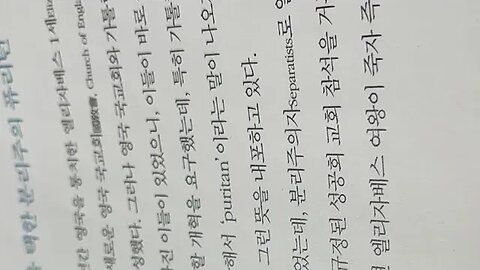 택한 분리주의 퓨리턴
년간 영국을 통치한 엘리자베스 1세Eliz
새로운 영국 국교회國敎會, Church of Englan 와 가톨릭
성했다. 그러나 영국 국교회
진 이들이 있었으니, 이들이 바로
할 개혁을 요구했는데, 특히 가톨
해서 'puritan'이라는 말이 나오
그런 뜻을 내포하고 있다.
었는데, 분리주의자Separatists로 알
규정된 성공회 교회 참석을 거
엘리자베스 여왕이 죽자 즉